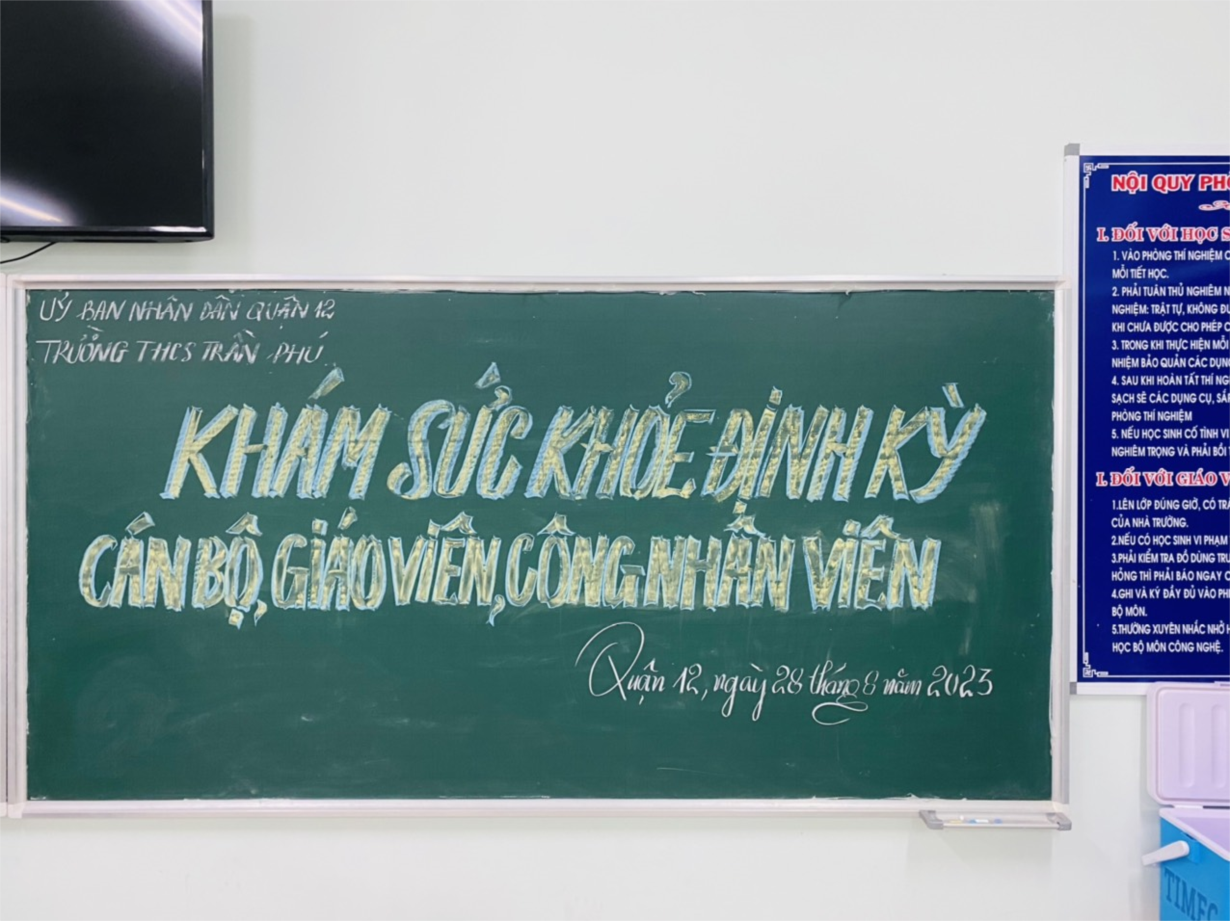 UỶ BAN NHÂN DÂN QUẬN 12
TRƯỜNG THCS TRẦN PHÚ
KHÁM SỨC KHOẺ ĐỊNH KỲ
CÁN BỘ, GIÁO VIÊN, CÔNG NHÂN VIÊN
Quận 12, ngày 28 tháng 8 năm 2023
NỘI QUY
I. ĐỐI VỚI HỌC
1. VÀO PHÒNG THÍ NGHIỆM
MỖI TIẾT HỌC.
2. PHẢI TUÂN THỦ NGHIÊM
NGHIỆM: TRẬT TỰ, KHÔNG
KHI CHƯA ĐƯỢC CHO PHÉP
3. TRONG KHI THỰC HIỆN MỖI
NHIỆM BẢO QUẢN CÁC DỤNG
4. SAU KHI HOÀN TẤT THÍ
SẠCH SẼ CÁC DỤNG CỤ,
PHÒNG THÍ NGHIỆM
5. NẾU HỌC SINH CỐ TÌNH VI
NGHIÊM TRỌNG VÀ PHẢI BỒI
I. ĐỐI VỚI GIÁO
1.LÊN LỚP ĐÚNG GIỜ, CÓ
CỦA NHÀ TRƯỜNG.
2.NẾU CÓ HỌC SINH VI PHẠM
3.PHẢI KIỂM TRA ĐỒ DÙNG
HỎNG THÌ PHẢI BÁO NGAY
4.GHI VÀ KÝ ĐẦY ĐỦ VÀO
BỘ MÔN.
5.THƯỜNG XUYÊN NHẮC NHỞ
HỌC BỘ MÔN CÔNG NGHỆ.